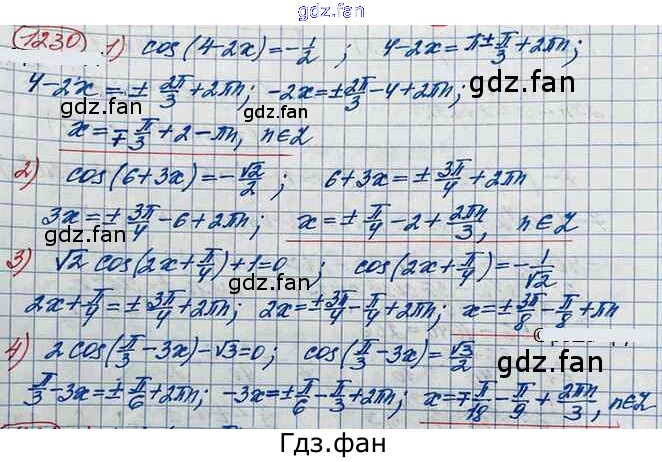 gdz.fan
1230 1) cos(4-2x)=-1/2 ; 4-2x=π±π/3+2πn;
4-2x=±2π/3+2πn; -2x=±2π/3-4+2πn;
gdz.fan gdz.fan
x=∓π/3+2-πn, n∈Z
2) cos(6+3x)=-√2/2 ; 6+3x=±3π/4+2πn
3x=±3π/4-6+2πn; x=±π/4-2+2πn/3, n∈Z
gdz.fan gdz.fan
3) √2 cos(2x+π/4)+1=0 ; cos(2x+π/4)=-1/√2
2x+π/4=±3π/4+2πn; 2x=±3π/4-π/4+2πn; x=±3π/8-π/8+πn
4) 2cos(π/3-3x)-√3=0; cos(π/3-3x)=√3/2
gdz.fan gdz.fan
π/3-3x=±π/6+2πn; -3x=±π/6-π/3+2πn; x=∓π/18-π/9+2πn/3, n∈Z
Гдз.фан